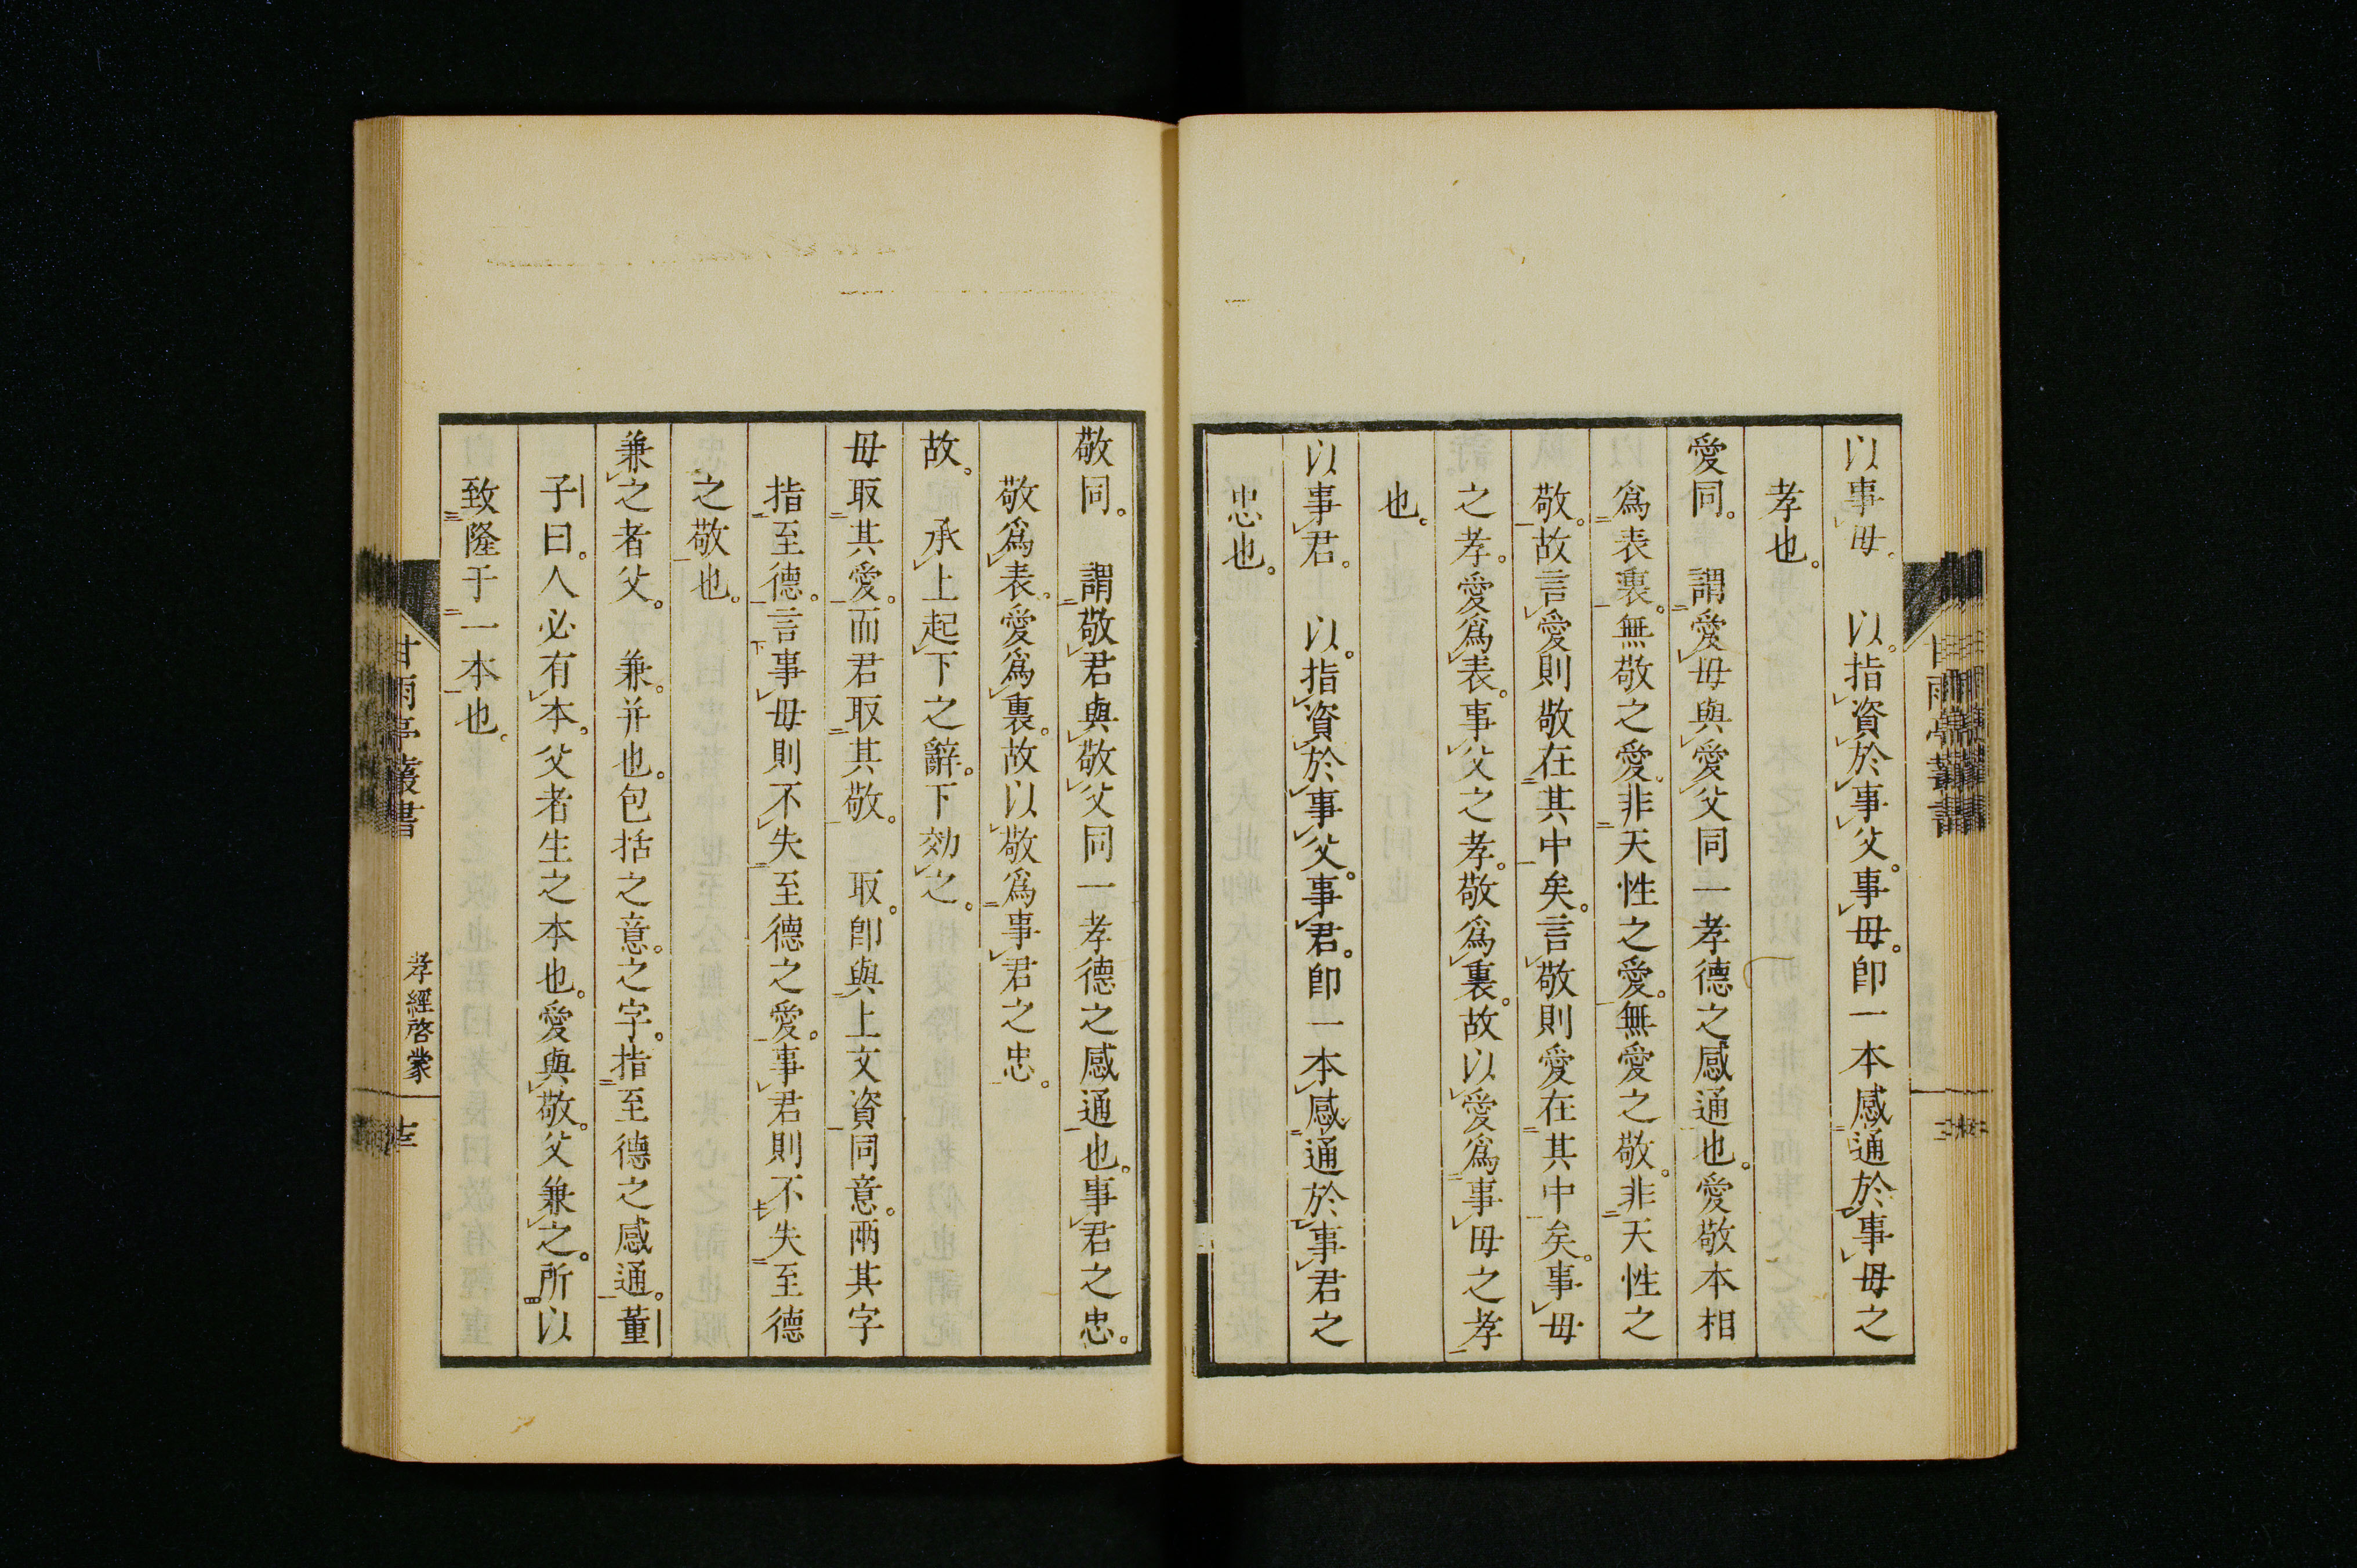 以事母。　以。指資於事父。事母。卽一本感通於事母之
孝也。
愛同。　謂愛母與愛父同一孝德之感通也。愛敬本相
爲表裏。無敬之愛。非天性之愛。無愛之敬。非天性之
敬。故言愛則敬在其中矣。言敬則愛在其中矣。事母
之孝。愛爲表。事父之孝。敬爲裏。故以愛爲事母之孝
也。
以事君。　以。指資於事父。事君。卽一本感通於事君之
忠也。
敬同。　謂敬君與敬父同一孝德之感通也。事君之忠。
敬爲表。愛爲裏。故以敬爲事君之忠。
故。　承上起下之辭。下効之。
母取其愛。而君取其敬。　取。卽與上文資同意。兩其字
指至德。言事母則不失至德之愛。事君則不失至德
之敬也。
兼之者父。　兼。并也。包括之意。之字。指至德之感通。董
子曰。人必有本。父者生之本也。愛與敬。父兼之。所以
致隆于一本也。
甘雨亭叢書
孝經啓蒙